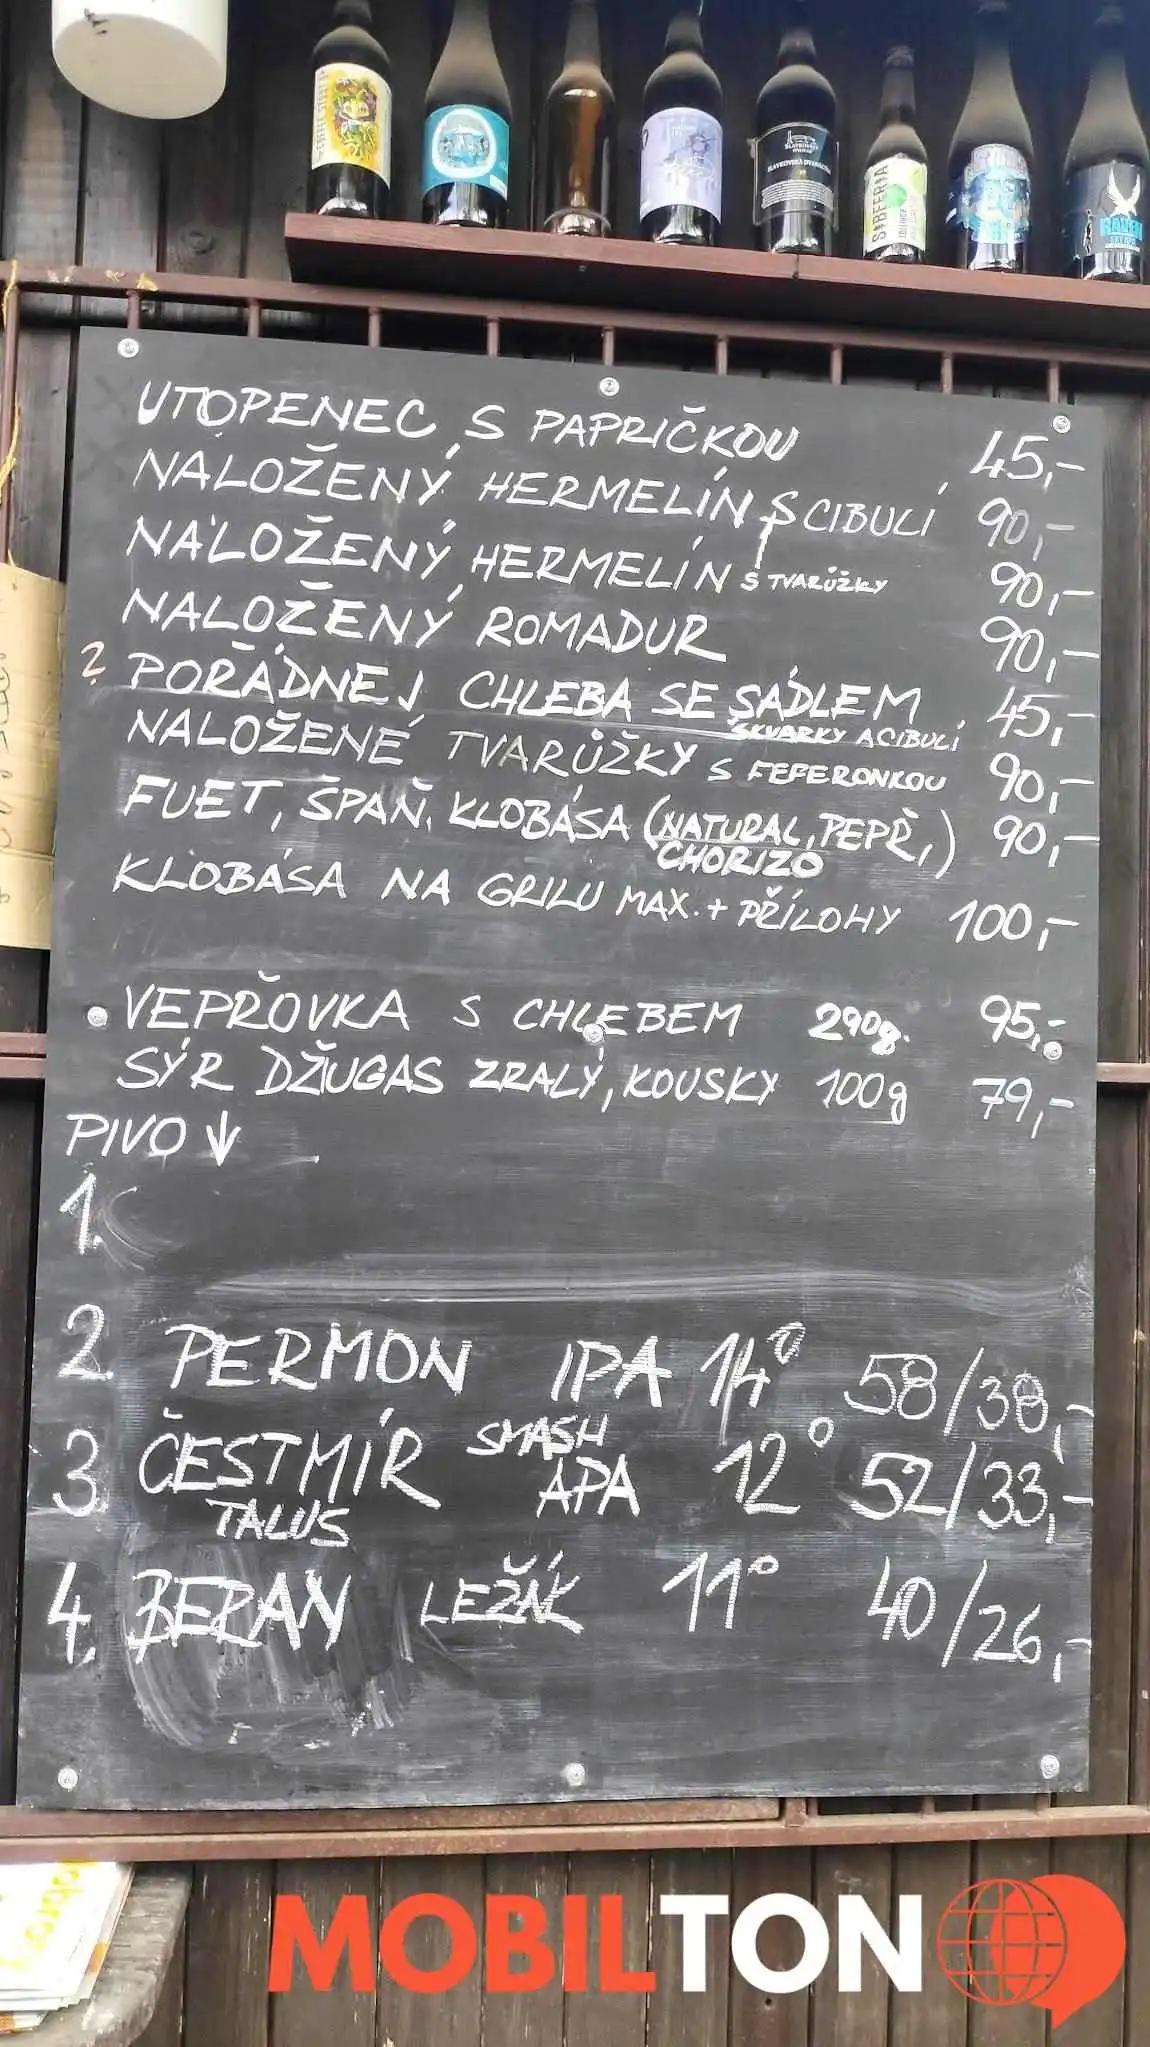 SIBEERIA
RAVEN
UTOPENEC S PAPRIČKOU 45,-
NALOŽENÝ HERMELÍN S CIBULÍ 90,-
NALOŽENÝ HERMELÍN S TVARŮŽKY 90,-
NALOŽENÝ ROMADUR 90,-
? POŘÁDNEJ CHLEBA SE SÁDLEM 45,-
ŠKVARKY A CIBULÍ
NALOŽENÉ TVARŮŽKY S FEFERONKOU 90,-
FUET, ŠPAŇ. KLOBÁSA (NATURAL, PEPŘ,) 90,-
CHORIZO
KLOBÁSA NA GRILU MAX. + PŘÍLOHY 100,-
VEPŘOVKA S CHLEBEM 290g. 95,-
SÝR DŽIUGAS ZRALÝ, KOUSKY 100g 79,-
PIVO ↓
1.
2. PERMON IPA 14° 58/38,-
3. ČESTMÍR SMASH APA 12° 52/33,-
TALUS
4. BERAN LEŽÁK 11° 40/26,-
MOBILTON